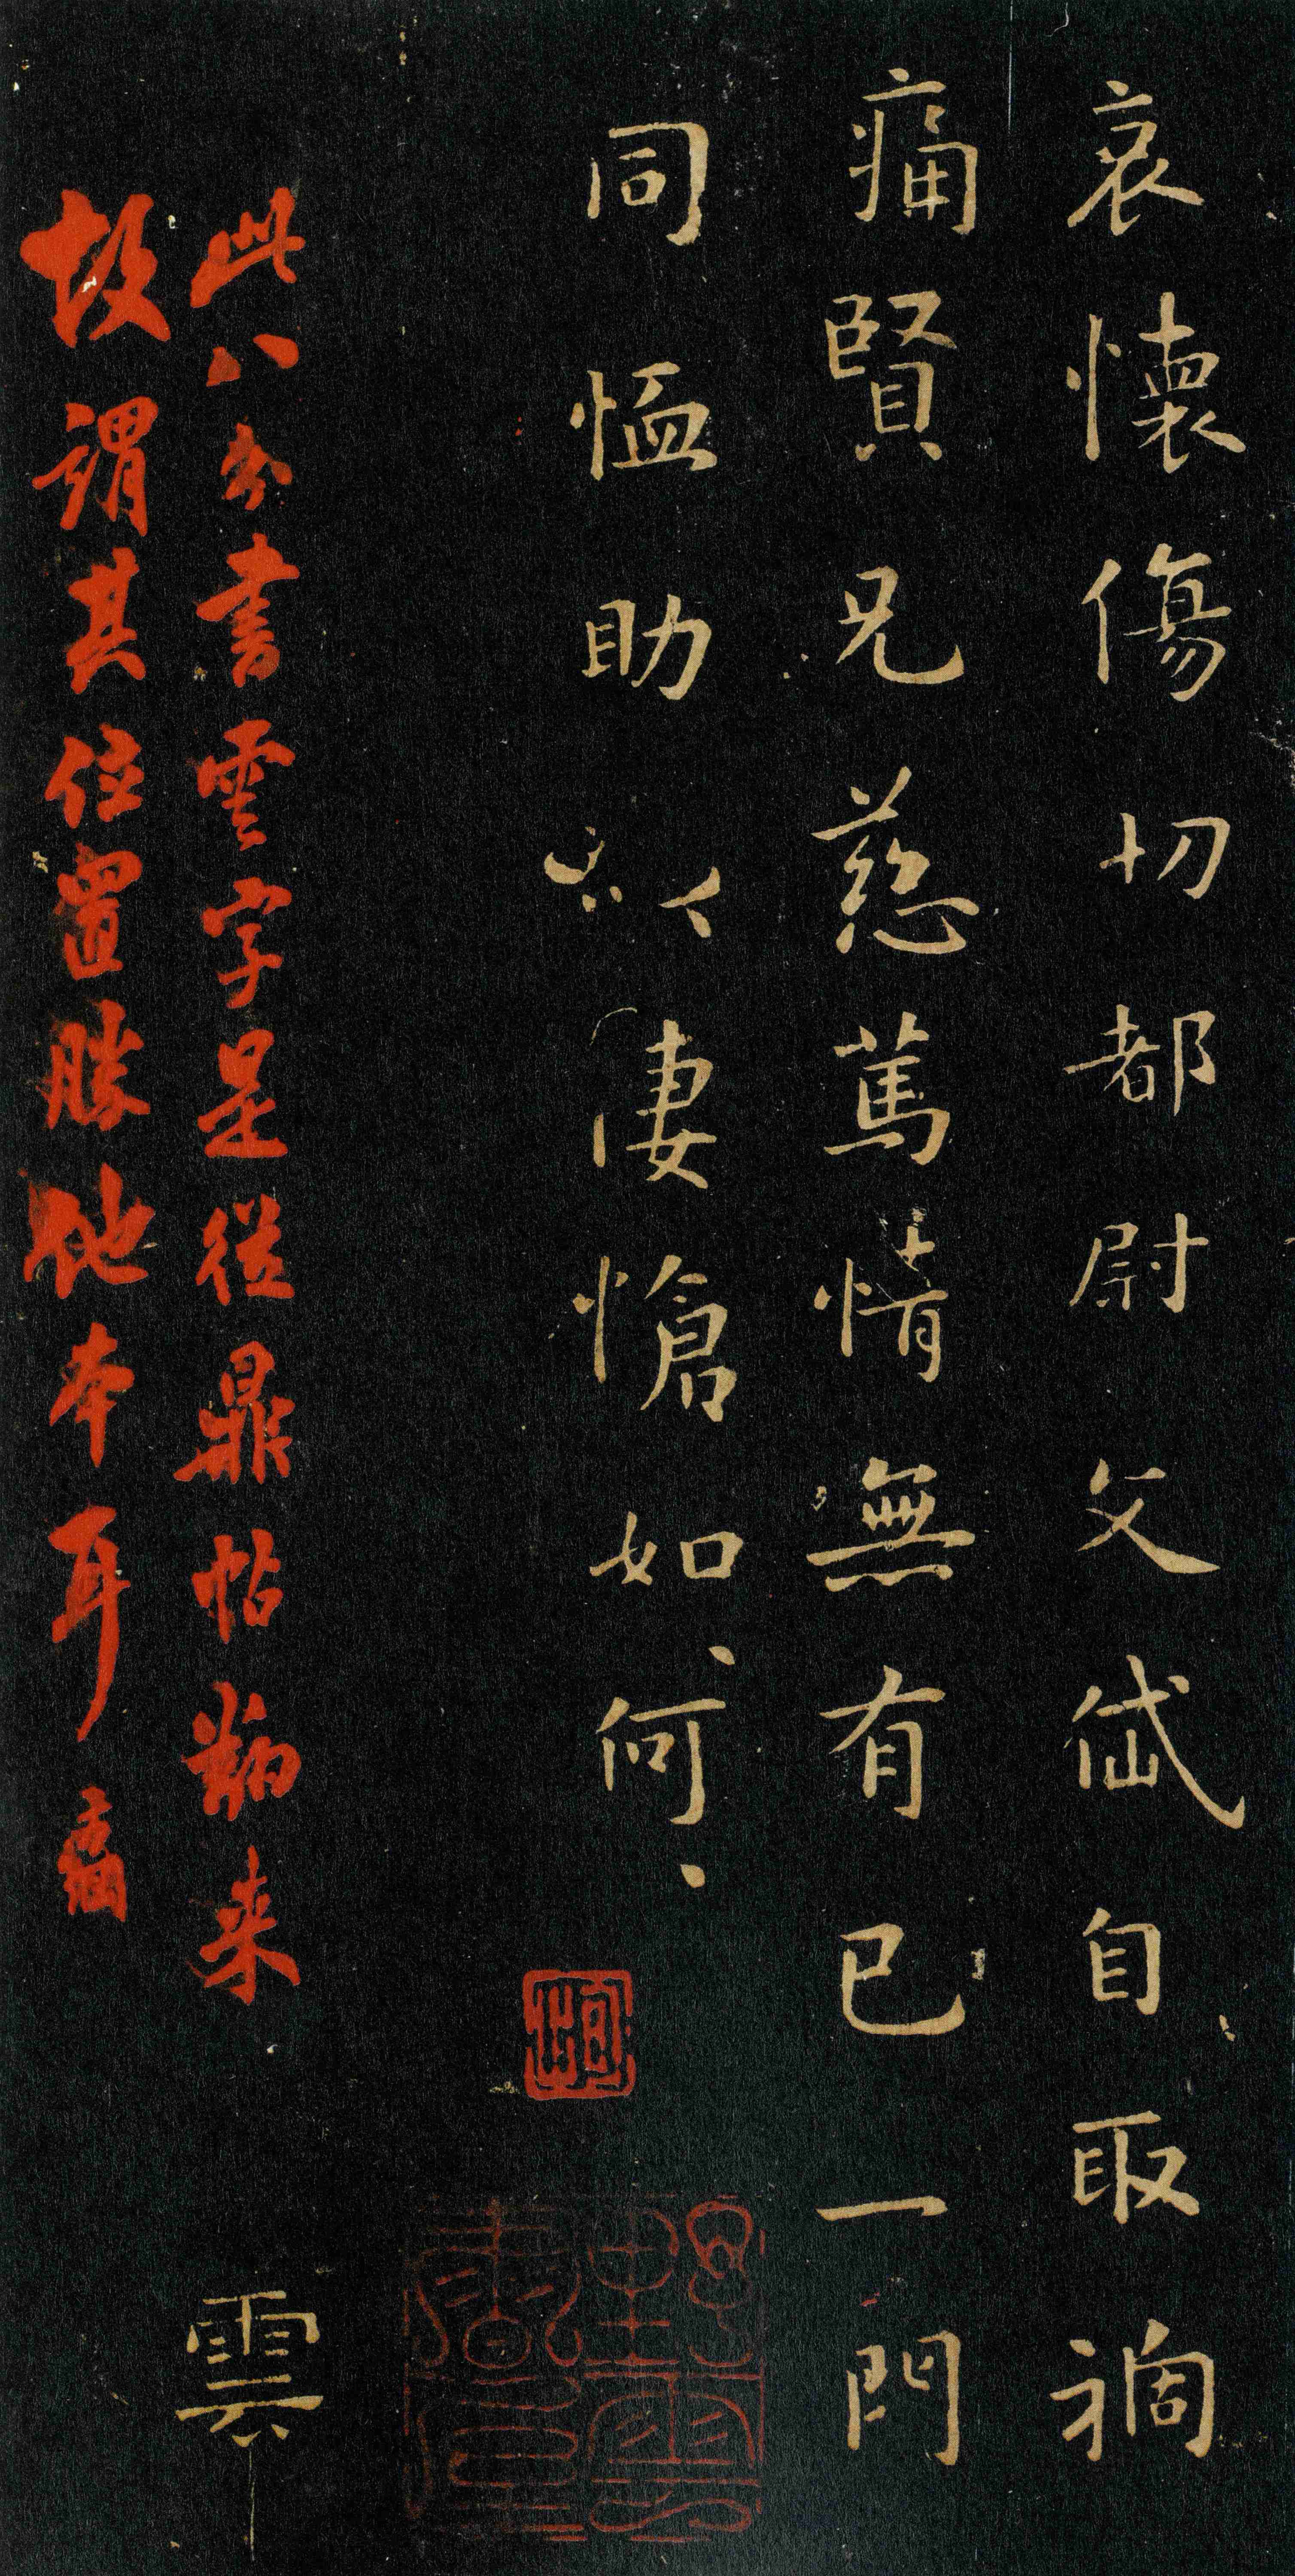 哀懷傷切都尉文岱自取禍
痛賢兄慈篤情無有已一門
同恤助以悽愴如何
此八分書雲字是從鼎帖翻来
故謂其位置勝他本耳
雲